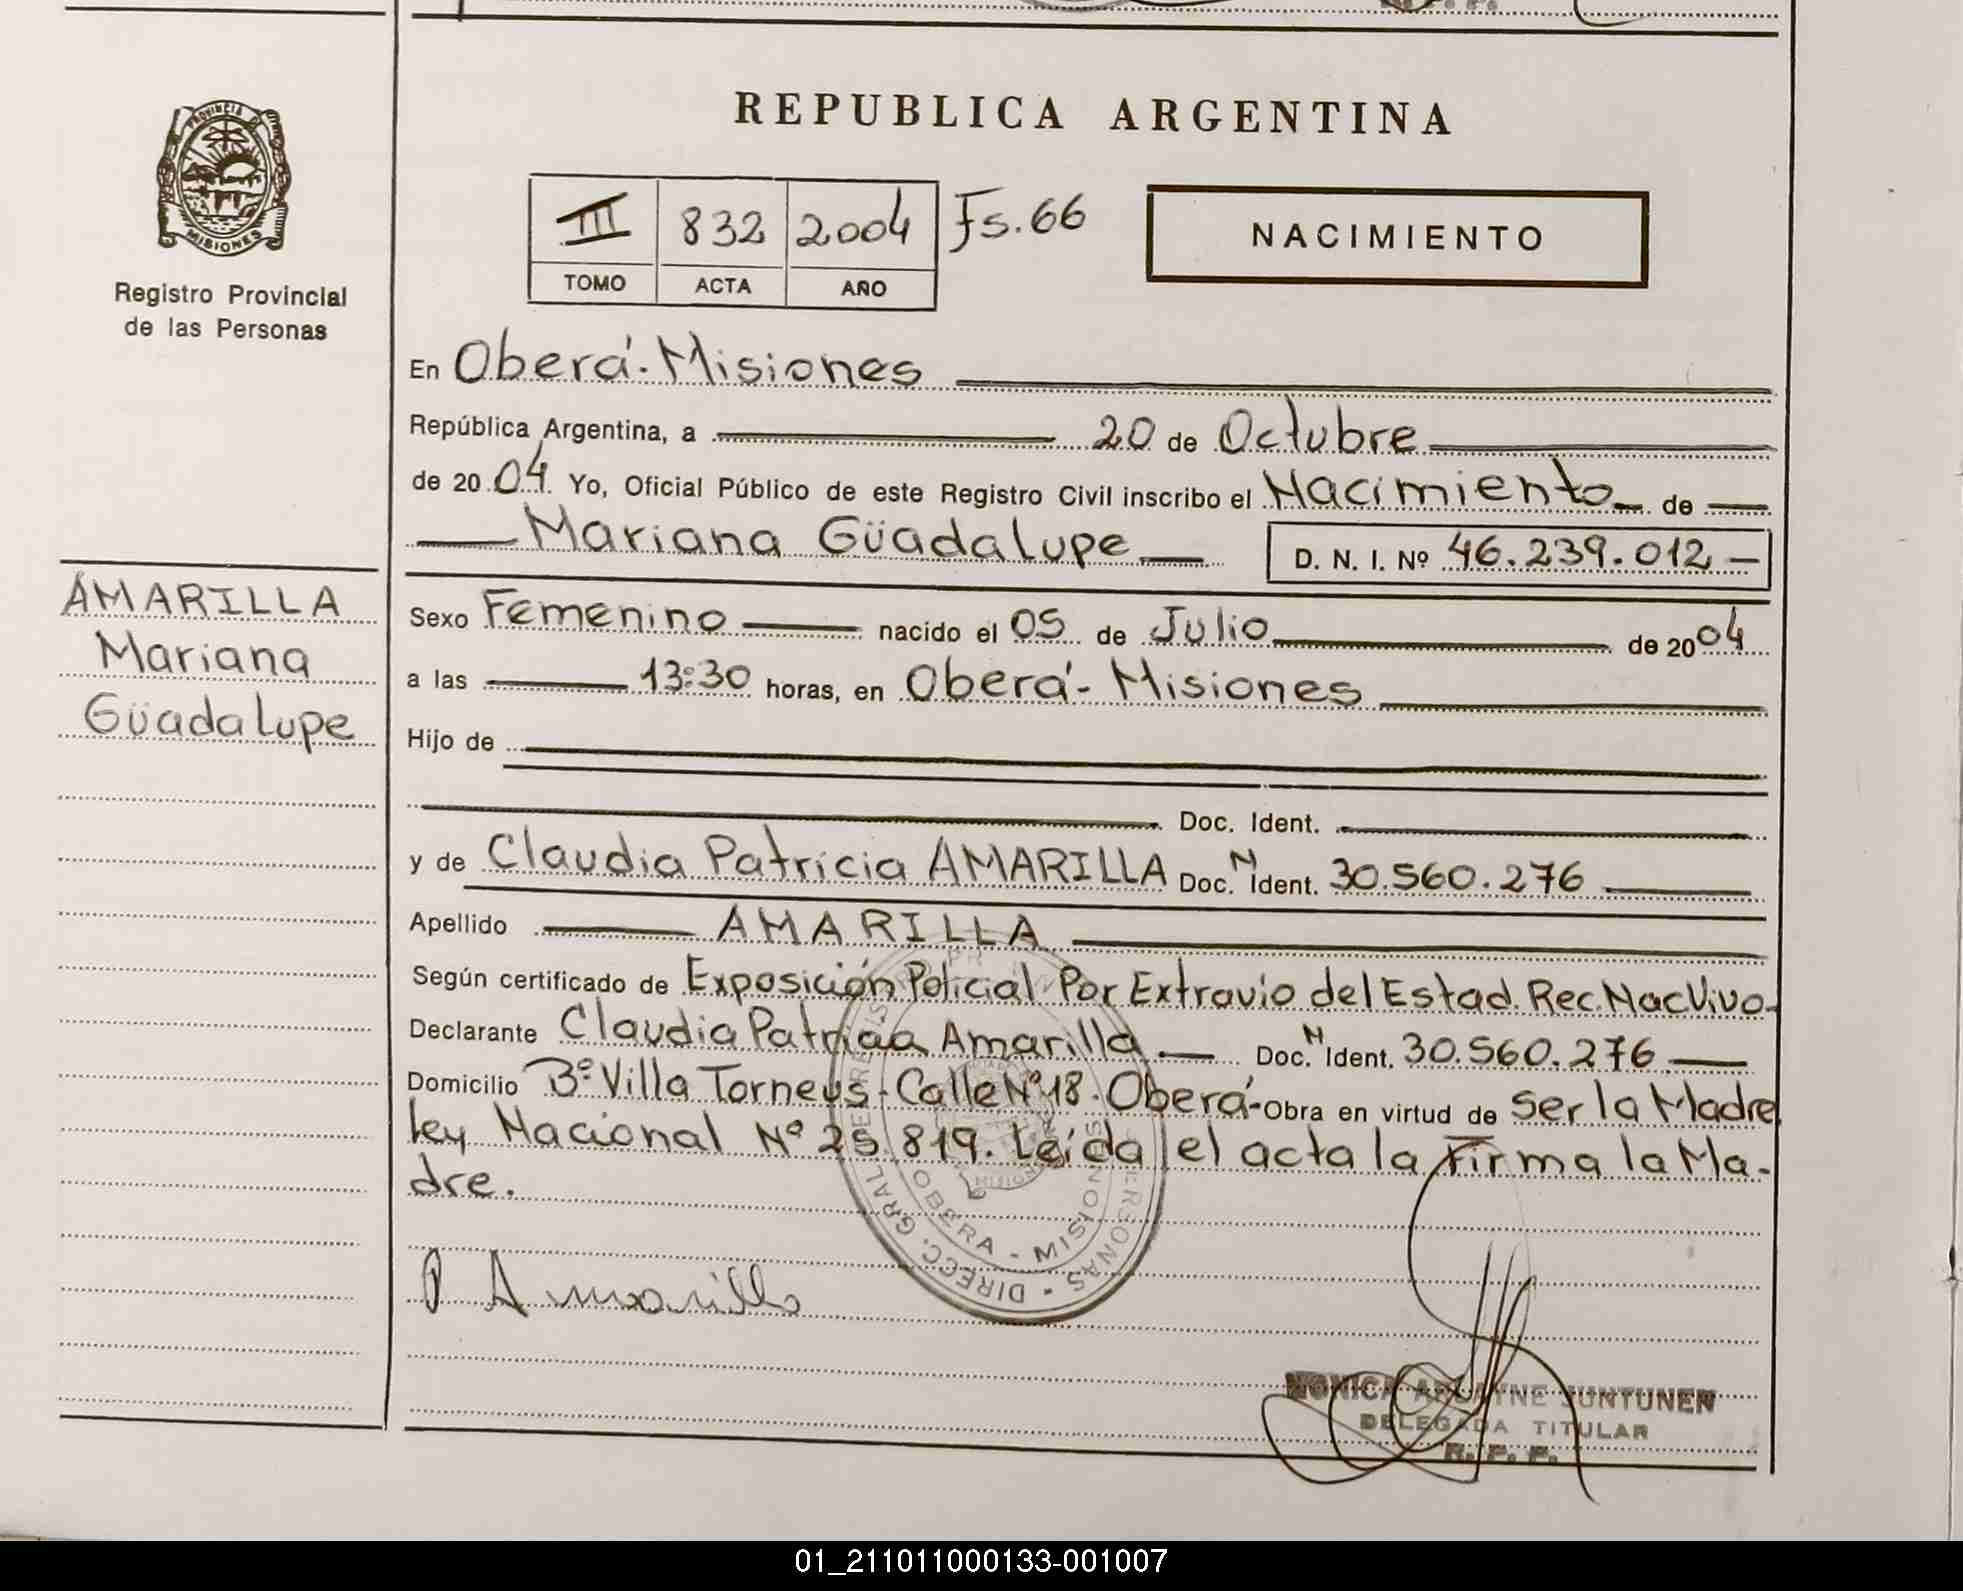 REPUBLICA ARGENTINA
PROVINCIA DE
MISIONES
Registro Provincial
de las Personas
III 832 2004 Fs.66
TOMO ACTA AÑO
NACIMIENTO
En Oberá-Misiones
República Argentina, a 20 de Octubre
de 2004 Yo, Oficial Público de este Registro Civil inscribo el Nacimiento de
Mariana Güadalupe D. N. I. Nº 46.239.012
AMARILLA
Mariana
Güadalupe
Sexo Femenino nacido el 05 de Julio de 2004
a las 13:30 horas, en Oberá-Misiones
Hijo de
Doc. Ident.
y de Claudia Patricia AMARILLA Doc. N Ident. 30.560.276
Apellido AMARILLA
Según certificado de Exposición Policial Por Extravio del Estad. Rec. Nac Vivo-
Declarante Claudia Patricia Amarilla Doc. N Ident. 30.560.276
Domicilio Bº Villa Torneus-Calle Nº18-Oberá- Obra en virtud de ser la Madre
Ley Nacional Nº 25.819. Leída el acta la Firma la Ma-
dre.
P Amarilla
DIRECC. GRAL. PERSONAS
OBERA - MISIONES
MONICA JUNTUNEN
DELEGADA TITULAR
R. P. P.
01_211011000133-001007